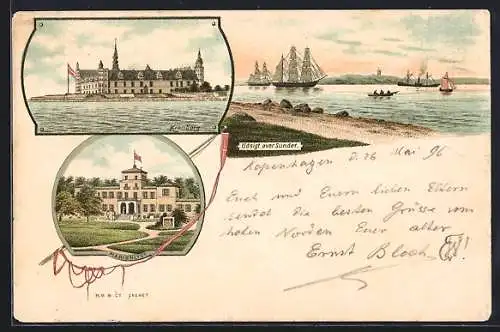 Kronborg
Udsigt over Sundet.
MARIENLYST
Kopenhagen d. 26 Mai 96
Euch und Euern lieben Eltern
sendet die besten Grüsse vom
hohen Norden Euer alter
Ernst Bloch